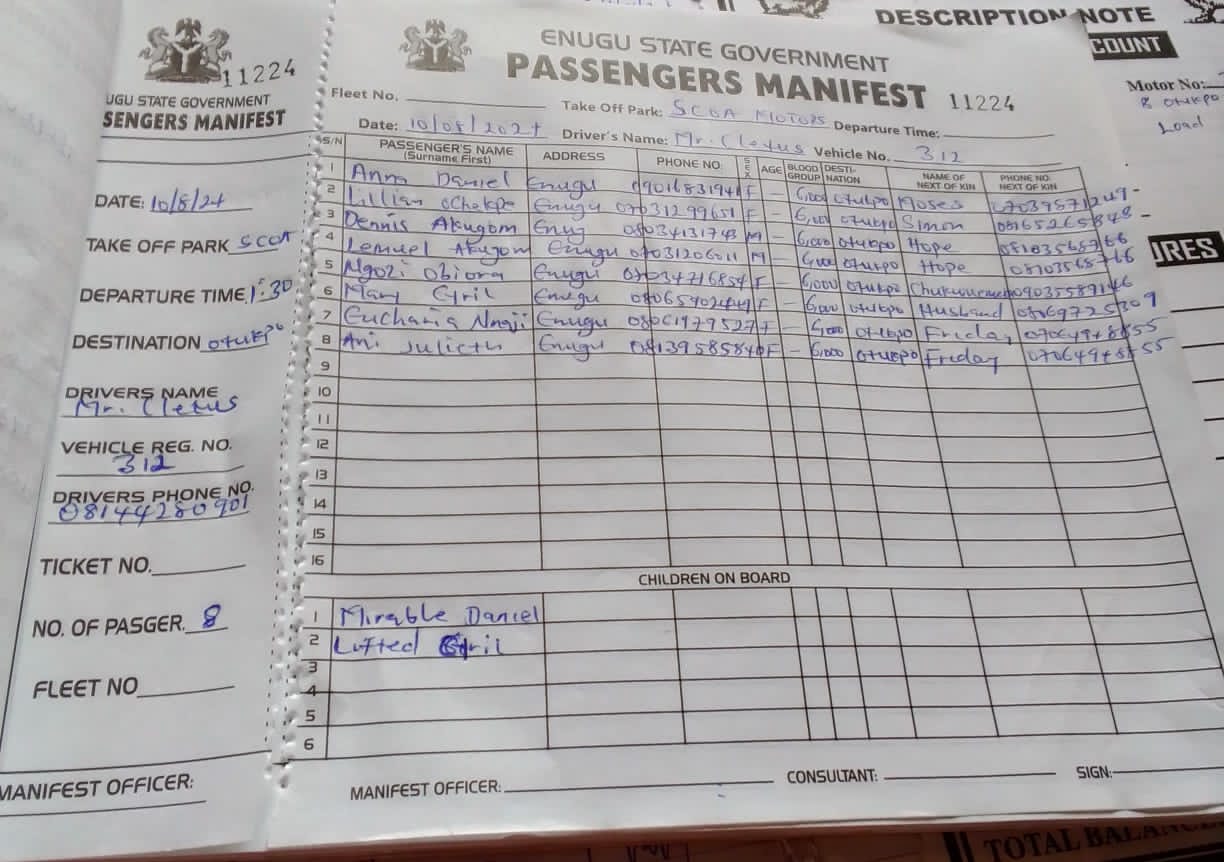 11224
UGU STATE GOVERNMENT
SENGERS MANIFEST
DATE: 10/8/24
TAKE OFF PARK SCOA
DEPARTURE TIME 1:30
DESTINATION Otukpo
DRIVERS NAME
Mr. Cletus
VEHICLE REG. NO.
312
DRIVERS PHONE NO.
08144280901
TICKET NO.
NO. OF PASGER. 8
FLEET NO
MANIFEST OFFICER:
ENUGU STATE GOVERNMENT
PASSENGERS MANIFEST 11224
Fleet No. Take Off Park: SCOA MOTORS Departure Time:
Date: 10/08/2024 Driver's Name: Mr. Cletus Vehicle No. 312
S/N PASSENGER'S NAME (Surname First) ADDRESS PHONE NO. SEX AGE BLOOD GROUP DESTI-NATION NAME OF NEXT OF KIN PHONE NO. NEXT OF KIN
1 Anna Daniel Enugu F - 6,000 Otukpo Moses
2 Lillian Ochekpe Enugu 07031299651 F - 6,000 Otukpo Simon 08165265848
3 Dennis Akugom Enug 08034131743 M - 6,000 Otukpo Hope
4 Lemuel Akugom Enugu 07031206011 M - 6,000 Otukpo Hope 08103568766
5 Ngozi Obiora Enugu 07034716854 F - 6,000 Otukpo
6 Mary Cyril Enugu F - 6,000 Otukpo Husband 08069725309
7 Eucharia Nnaji Enugu 08061979527 F - 6,000 Otukpo Friday
8 Ani Julieth Enugu 08139585840 F - 6,000 Otukpo Friday
9
10
11
12
13
14
15
16
CHILDREN ON BOARD
1 Mirable Daniel
2 Lifted Cyril
3
4
5
6
MANIFEST OFFICER: CONSULTANT: SIGN:
DESCRIPTION NOTE
COUNT
Motor No:
8 Otukpo
Load
URES
TOTAL BALANCE